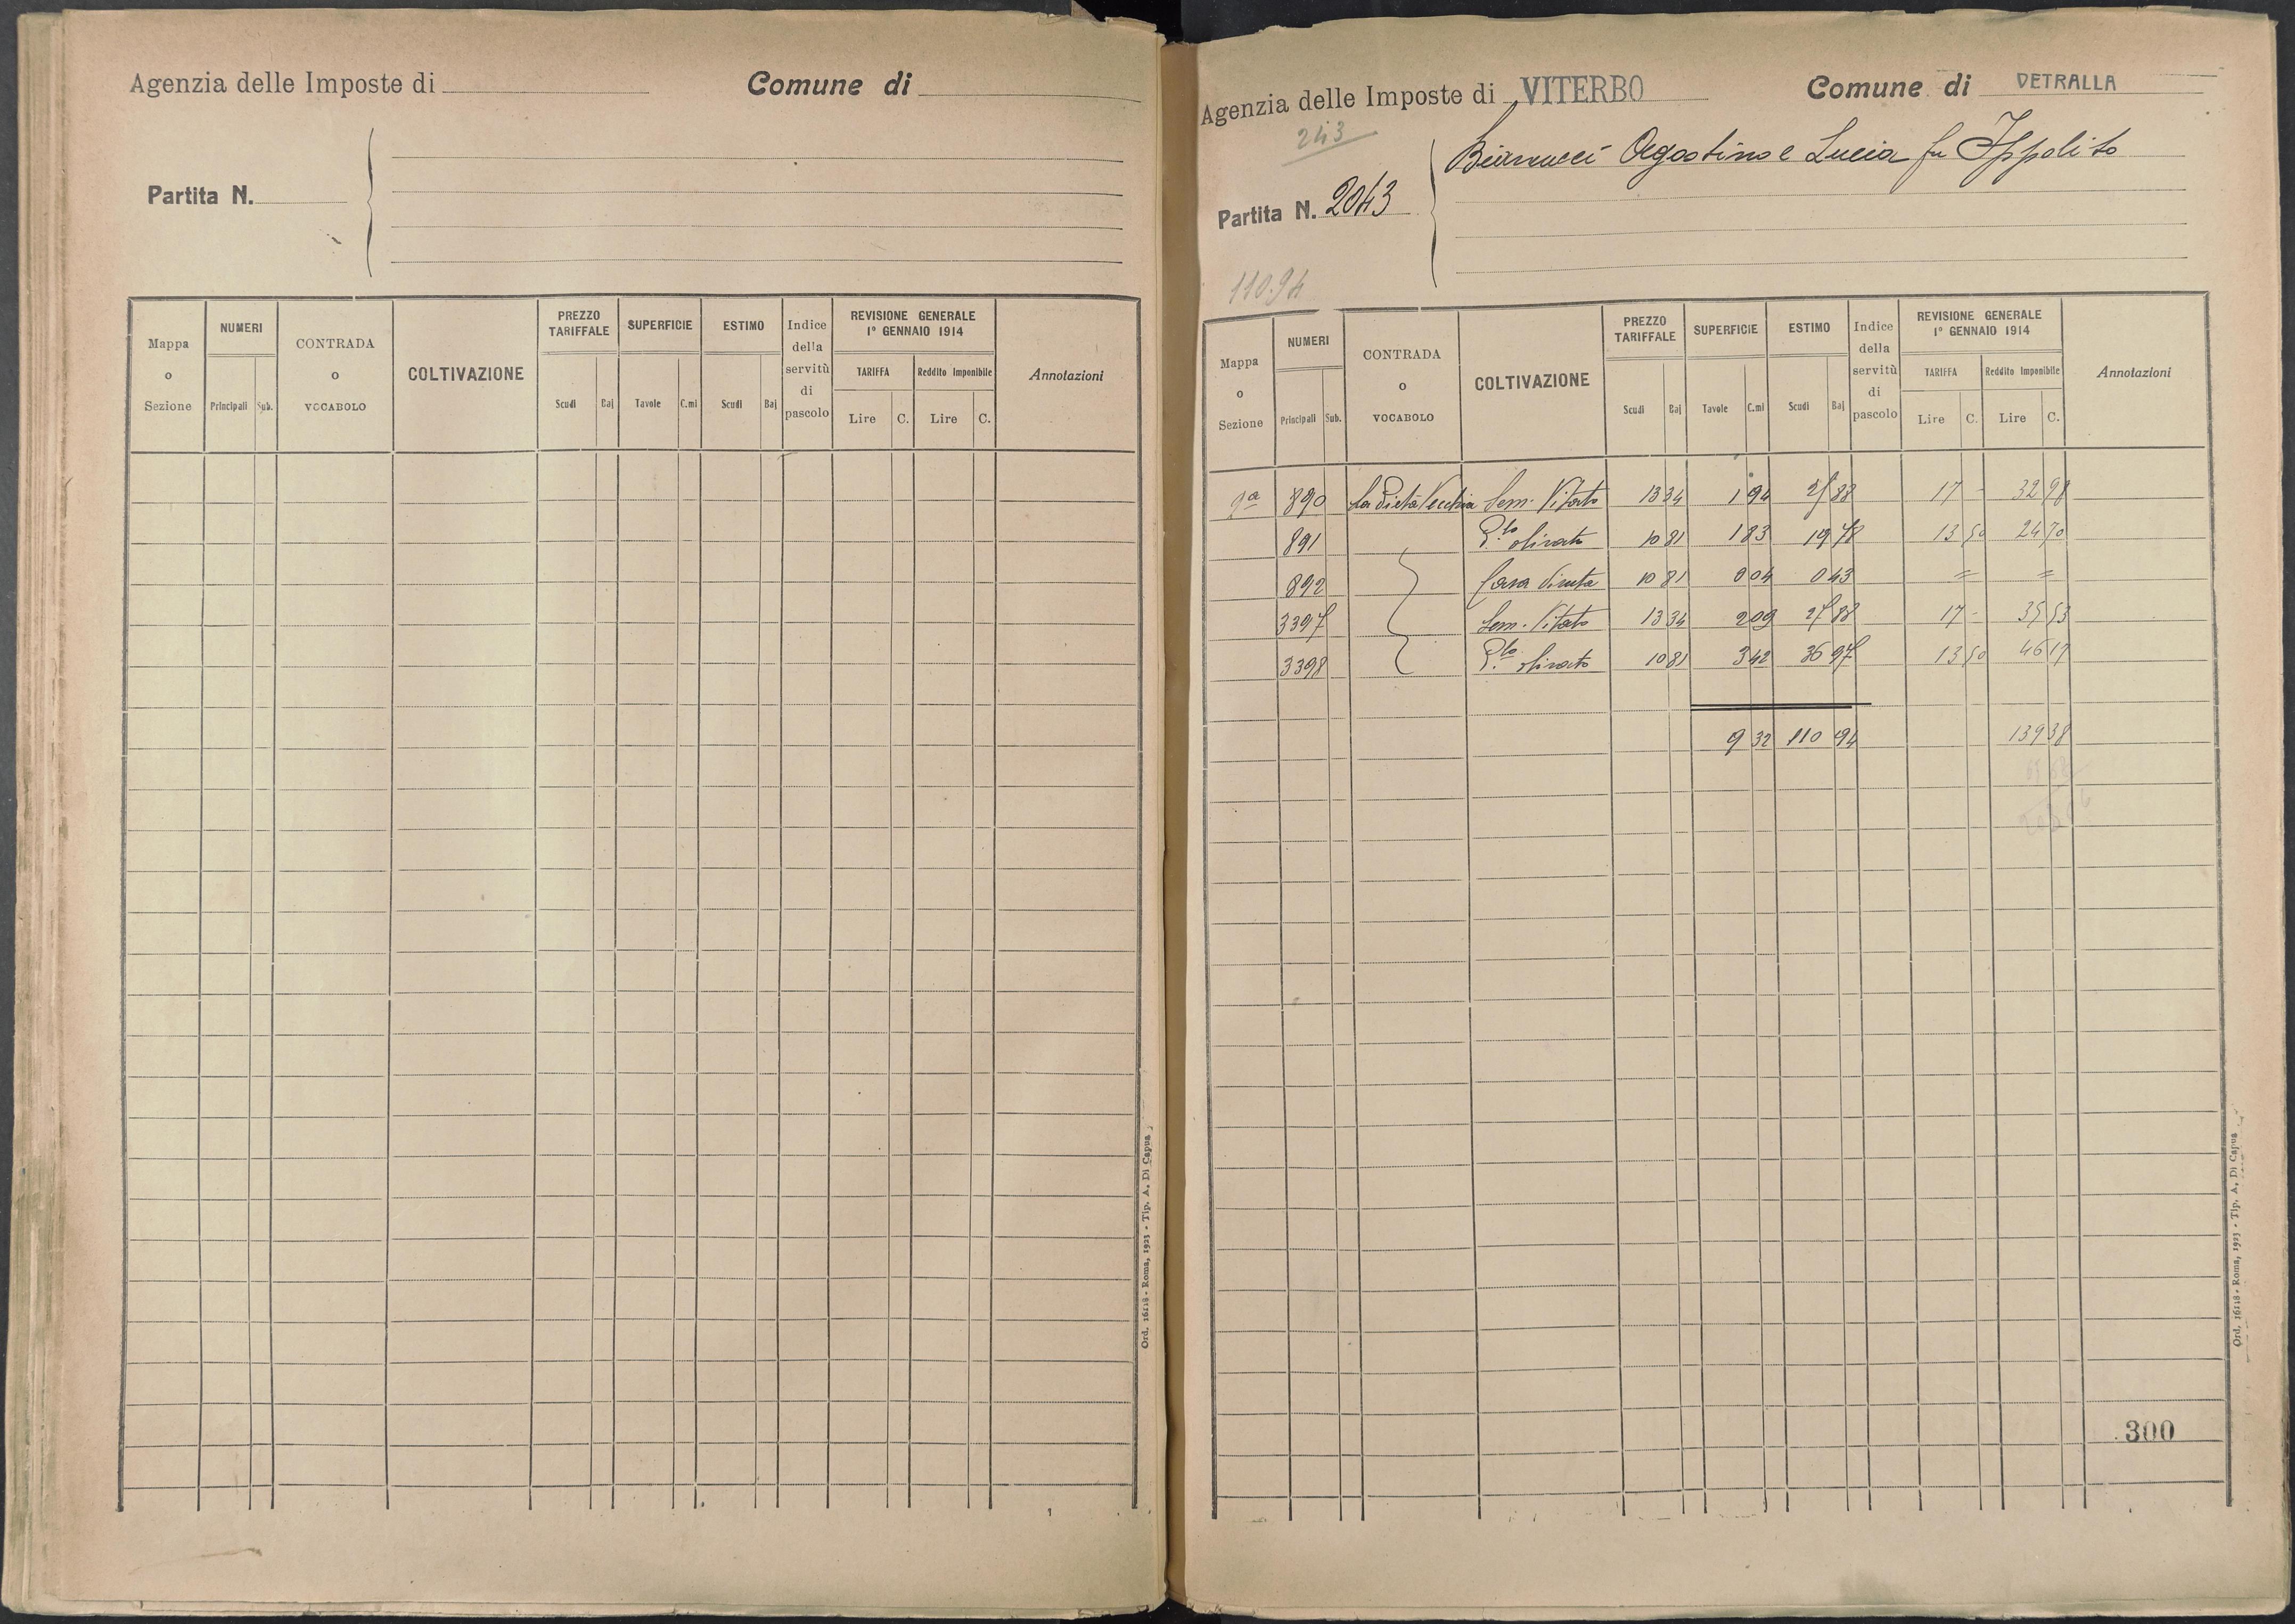 Agenzia delle Imposte di
Comune di
Partita N.
Mappa o Sezione
NUMERI
Principali Sub.
CONTRADA o VOCABOLO
COLTIVAZIONE
PREZZO TARIFFALE
Scudi Baj
SUPERFICIE
Tavole C.mi
ESTIMO
Scudi Baj
Indice della servitù di pascolo
REVISIONE GENERALE
1° GENNAIO 1914
TARIFFA Reddito Imponibile
Lire C. Lire C.
Annotazioni
Ord. 16118 - Roma, 1923 - Tip. A. Di Capua
1
Agenzia delle Imposte di VITERBO
Comune di VETRALLA
243
Bianucci Agostino e Lucia fu Ippolito
Partita N. 2043
110.94
Mappa o Sezione
NUMERI
Principali Sub.
CONTRADA o VOCABOLO
COLTIVAZIONE
PREZZO TARIFFALE
Scudi Baj
SUPERFICIE
Tavole C.mi
ESTIMO
Scudi Baj
Indice della servitù di pascolo
REVISIONE GENERALE
1° GENNAIO 1914
TARIFFA Reddito Imponibile
Lire C. Lire C.
Annotazioni
890 La Pietà Vecchia Sem. Vitato 13 34 1 94 25 88 17 - 32 98
891 P.to olivato 10 81 1 83 19 78 13 50 24 70
892 Casa diruta 10 81 0 04 0 43 = =
3397 Sem. Vitato 13 34 2 09 27 88 17 - 35 53
3398 P.to olivato 10 81 3 42 36 97 13 50 46 17
9 32 110 94 139 38
300
Ord. 16118 - Roma, 1923 - Tip. A. Di Capua